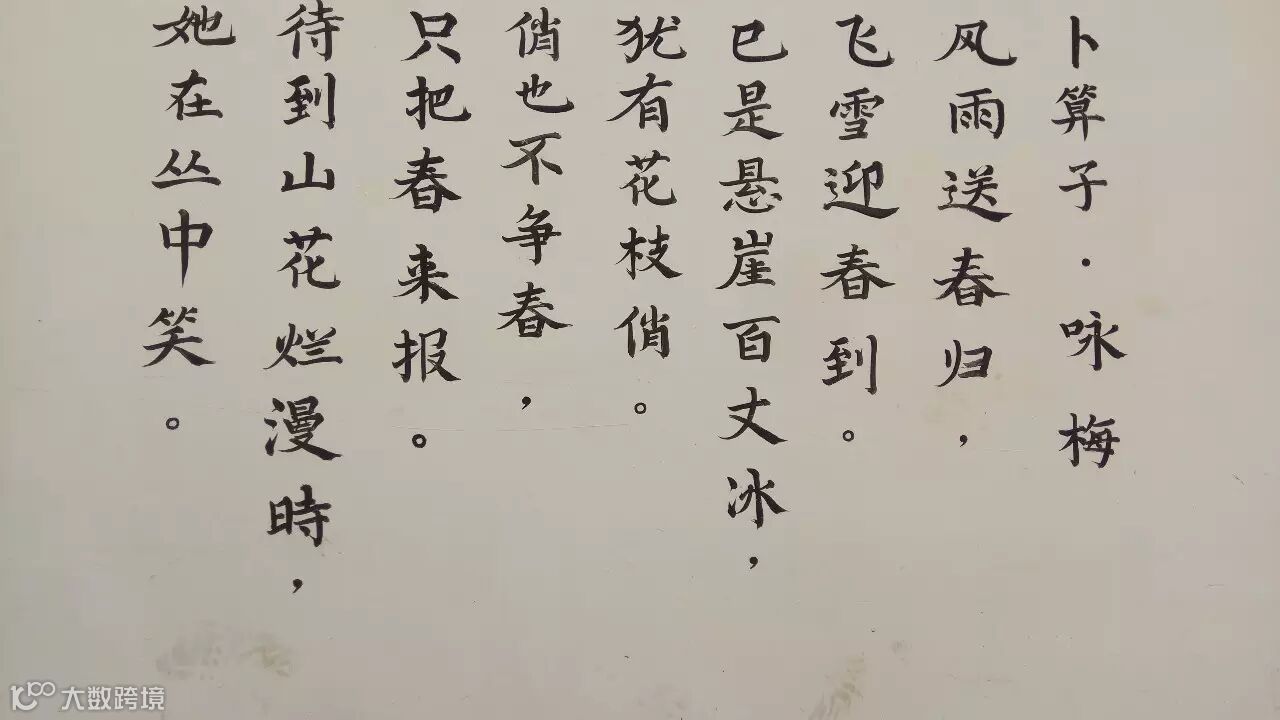 卜算子·咏梅
风雨送春归，
飞雪迎春到。
已是悬崖百丈冰，
犹有花枝俏。
俏也不争春，
只把春来报。
待到山花烂漫時，
她在丛中笑。
大数跨境